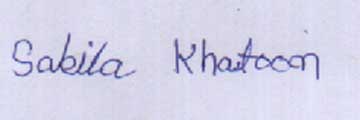 Sakila Khatoon